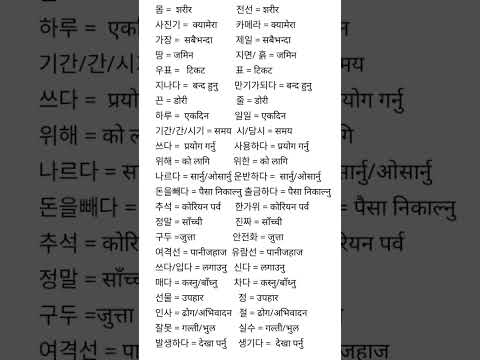 몸 = शरीर 전신 = शरीर
사진기 = क्यामेरा 카메라 = क्यामेरा
가장 = सबैभन्दा 제일 = सबैभन्दा
땅 = जमिन 지면/ 흙 = जमिन
우표 = टिकट 표 = टिकट
지나다 = बन्द हुनु 만기가되다 = बन्द हुनु
끈 = डोरी 줄 = डोरी
하루 = एकदिन 일일 = एकदिन
기간/간/시기 = समय 시/당시 = समय
쓰다 = प्रयोग गर्नु 사용하다 = प्रयोग गर्नु
위해 = को लागि 위한 = को लागि
나르다 = सार्नु/ओसार्नु 운반하다 = सार्नु/ओसार्नु
돈을빼다 = पैसा निकाल्नु 출금하다 = पैसा निकाल्नु
추석 = कोरियन पर्व 한가위 = कोरियन पर्व
정말 = साँच्ची 진짜 = साँच्ची
구두 =जुत्ता 안전화 = जुत्ता
여격선 = पानीजहाज 유람선 = पानीजहाज
쓰다/입다 = लगाउनु 신다 = लगाउनु
매다 = कस्नु/बाँध्नु 차다 = कस्नु/बाँध्नु
선물 = उपहार 정 = उपहार
인사 = ढोग/अभिवादन 절 = ढोग/अभिवादन
잘못 = गल्ती/भुल 실수 = गल्ती/भुल
발생하다 = देखा पर्नु 생기다 = देखा पर्नु
하루 = एकदि
기간/간/시
쓰다 = प्रयो
위해 = को
나르다 = स
돈을빼다
추석 = को
정말 = साँच
구두 =जुत्त
여격선 = प
एकदिन
= समय
प्रयोग गर्नु
लागि
र्नु/ओसार्नु
= पैसा निकाल्नु
कोरियन पर्व
साँच्ची
जुत्ता
पानीजहाज